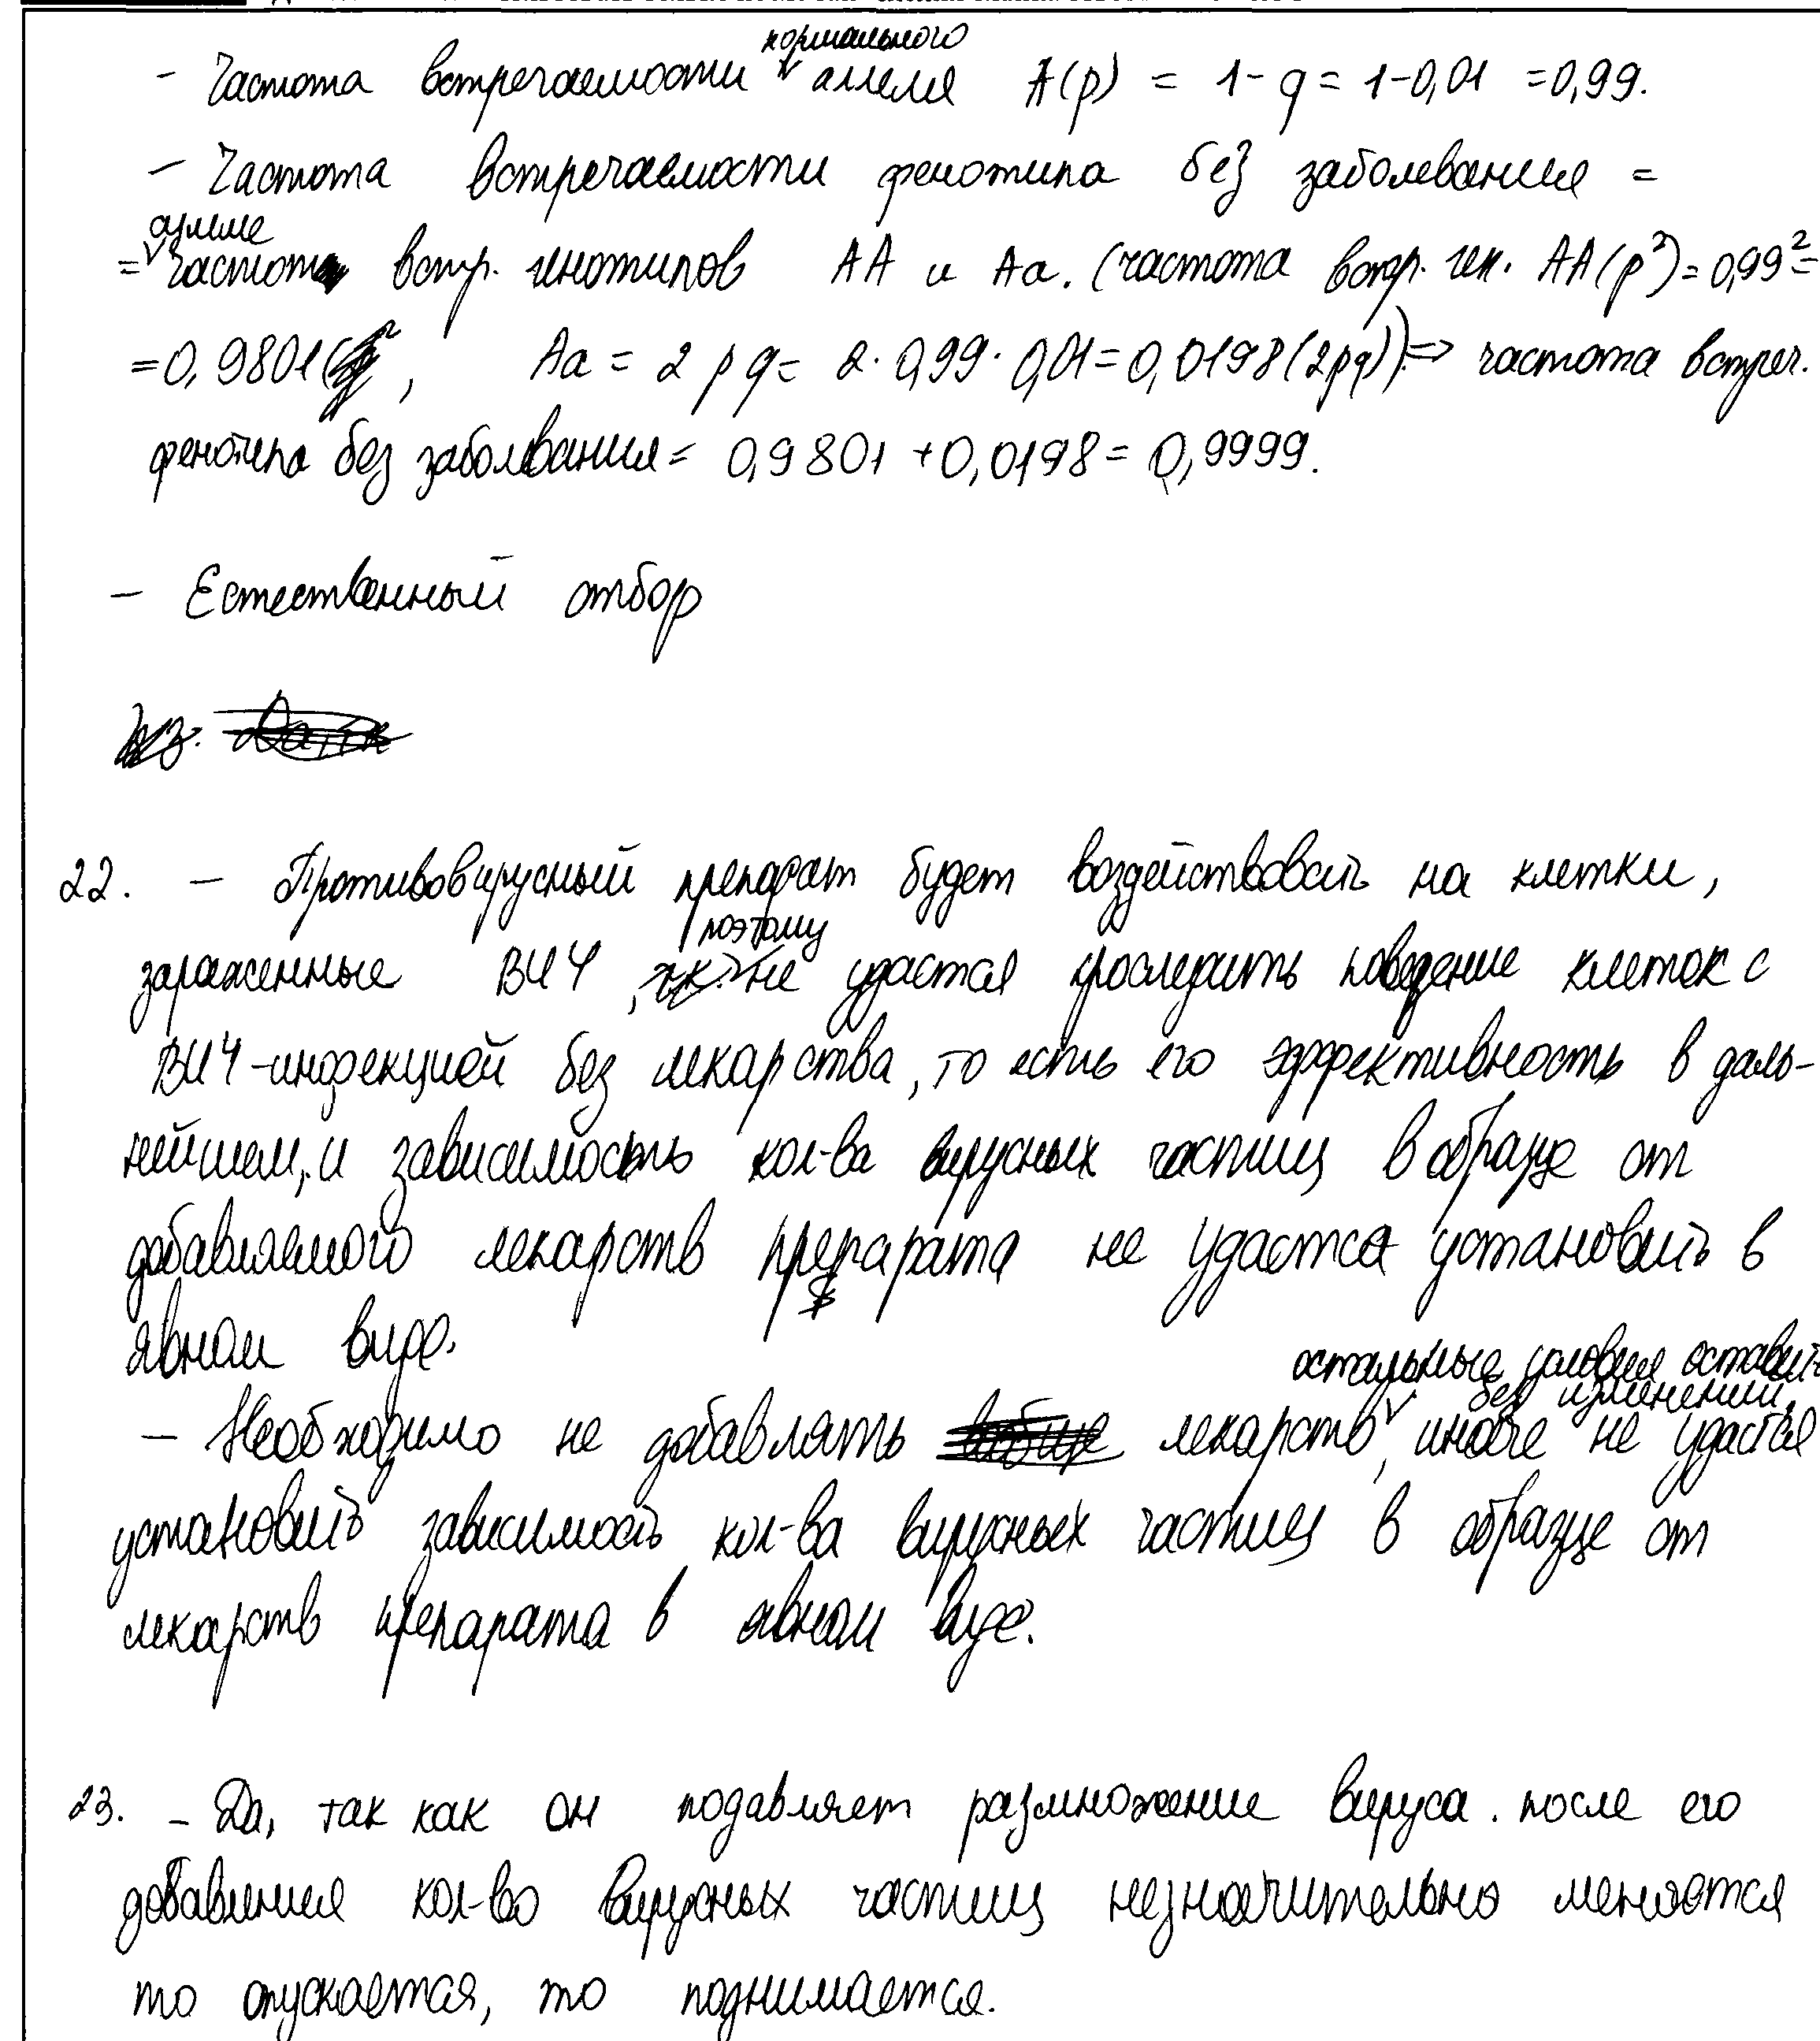 - Частота встречаемости нормального аллеля A(p) = 1- q = 1-0,01 =0,99.
- Частота встречаемости фенотипа без заболевания =
= сумме частот встр. генотипов AA и Aa. (частота встр. ген. AA(p²)=0,99²=
=0,9801, Aa = 2pq= 2·0,99·0,01=0,0198(2pq)) => частота встреч.
фенотипа без заболвания= 0,9801+0,0198=0,9999.
- Естественный отбор
22. - Противовирусный препарат будет воздействовать на клетки,
зараженные ВИЧ, поэтому не удастся проследить поведение клеток с
ВИЧ-инфекцией без лекарства, то есть его эффективность в даль-
нейшем, и зависимость кол-ва вирусных частиц в образце от
добавляемого лекарств препарата не удастся установить в
явном виде.
- Необходимо не добавлять лекарств, остальные условия оставить без изменений, иначе не удастся
установить зависимость кол-ва вирусных частиц в образце от
лекарств препарата в явном виде.
23. - Да, так как он подавляет размножение вируса. после его
добавления кол-во вирусных частиц незначительно меняется
то опускается, то поднимается.